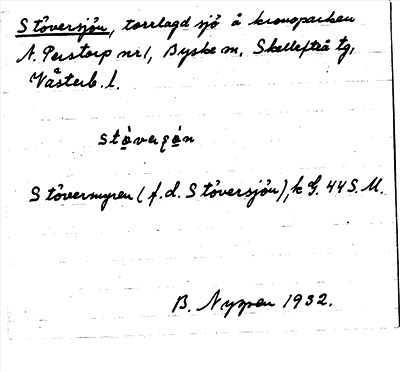 Stöversjön, torrlagd sjö å kronoparken
N. Perstorp nr 1, Byske sn, Skellefteå tg,
Västerb. l.
Stövermyren (f.d. Stöversjön), k G. 44 S.M.
B. Nyzen 1932.